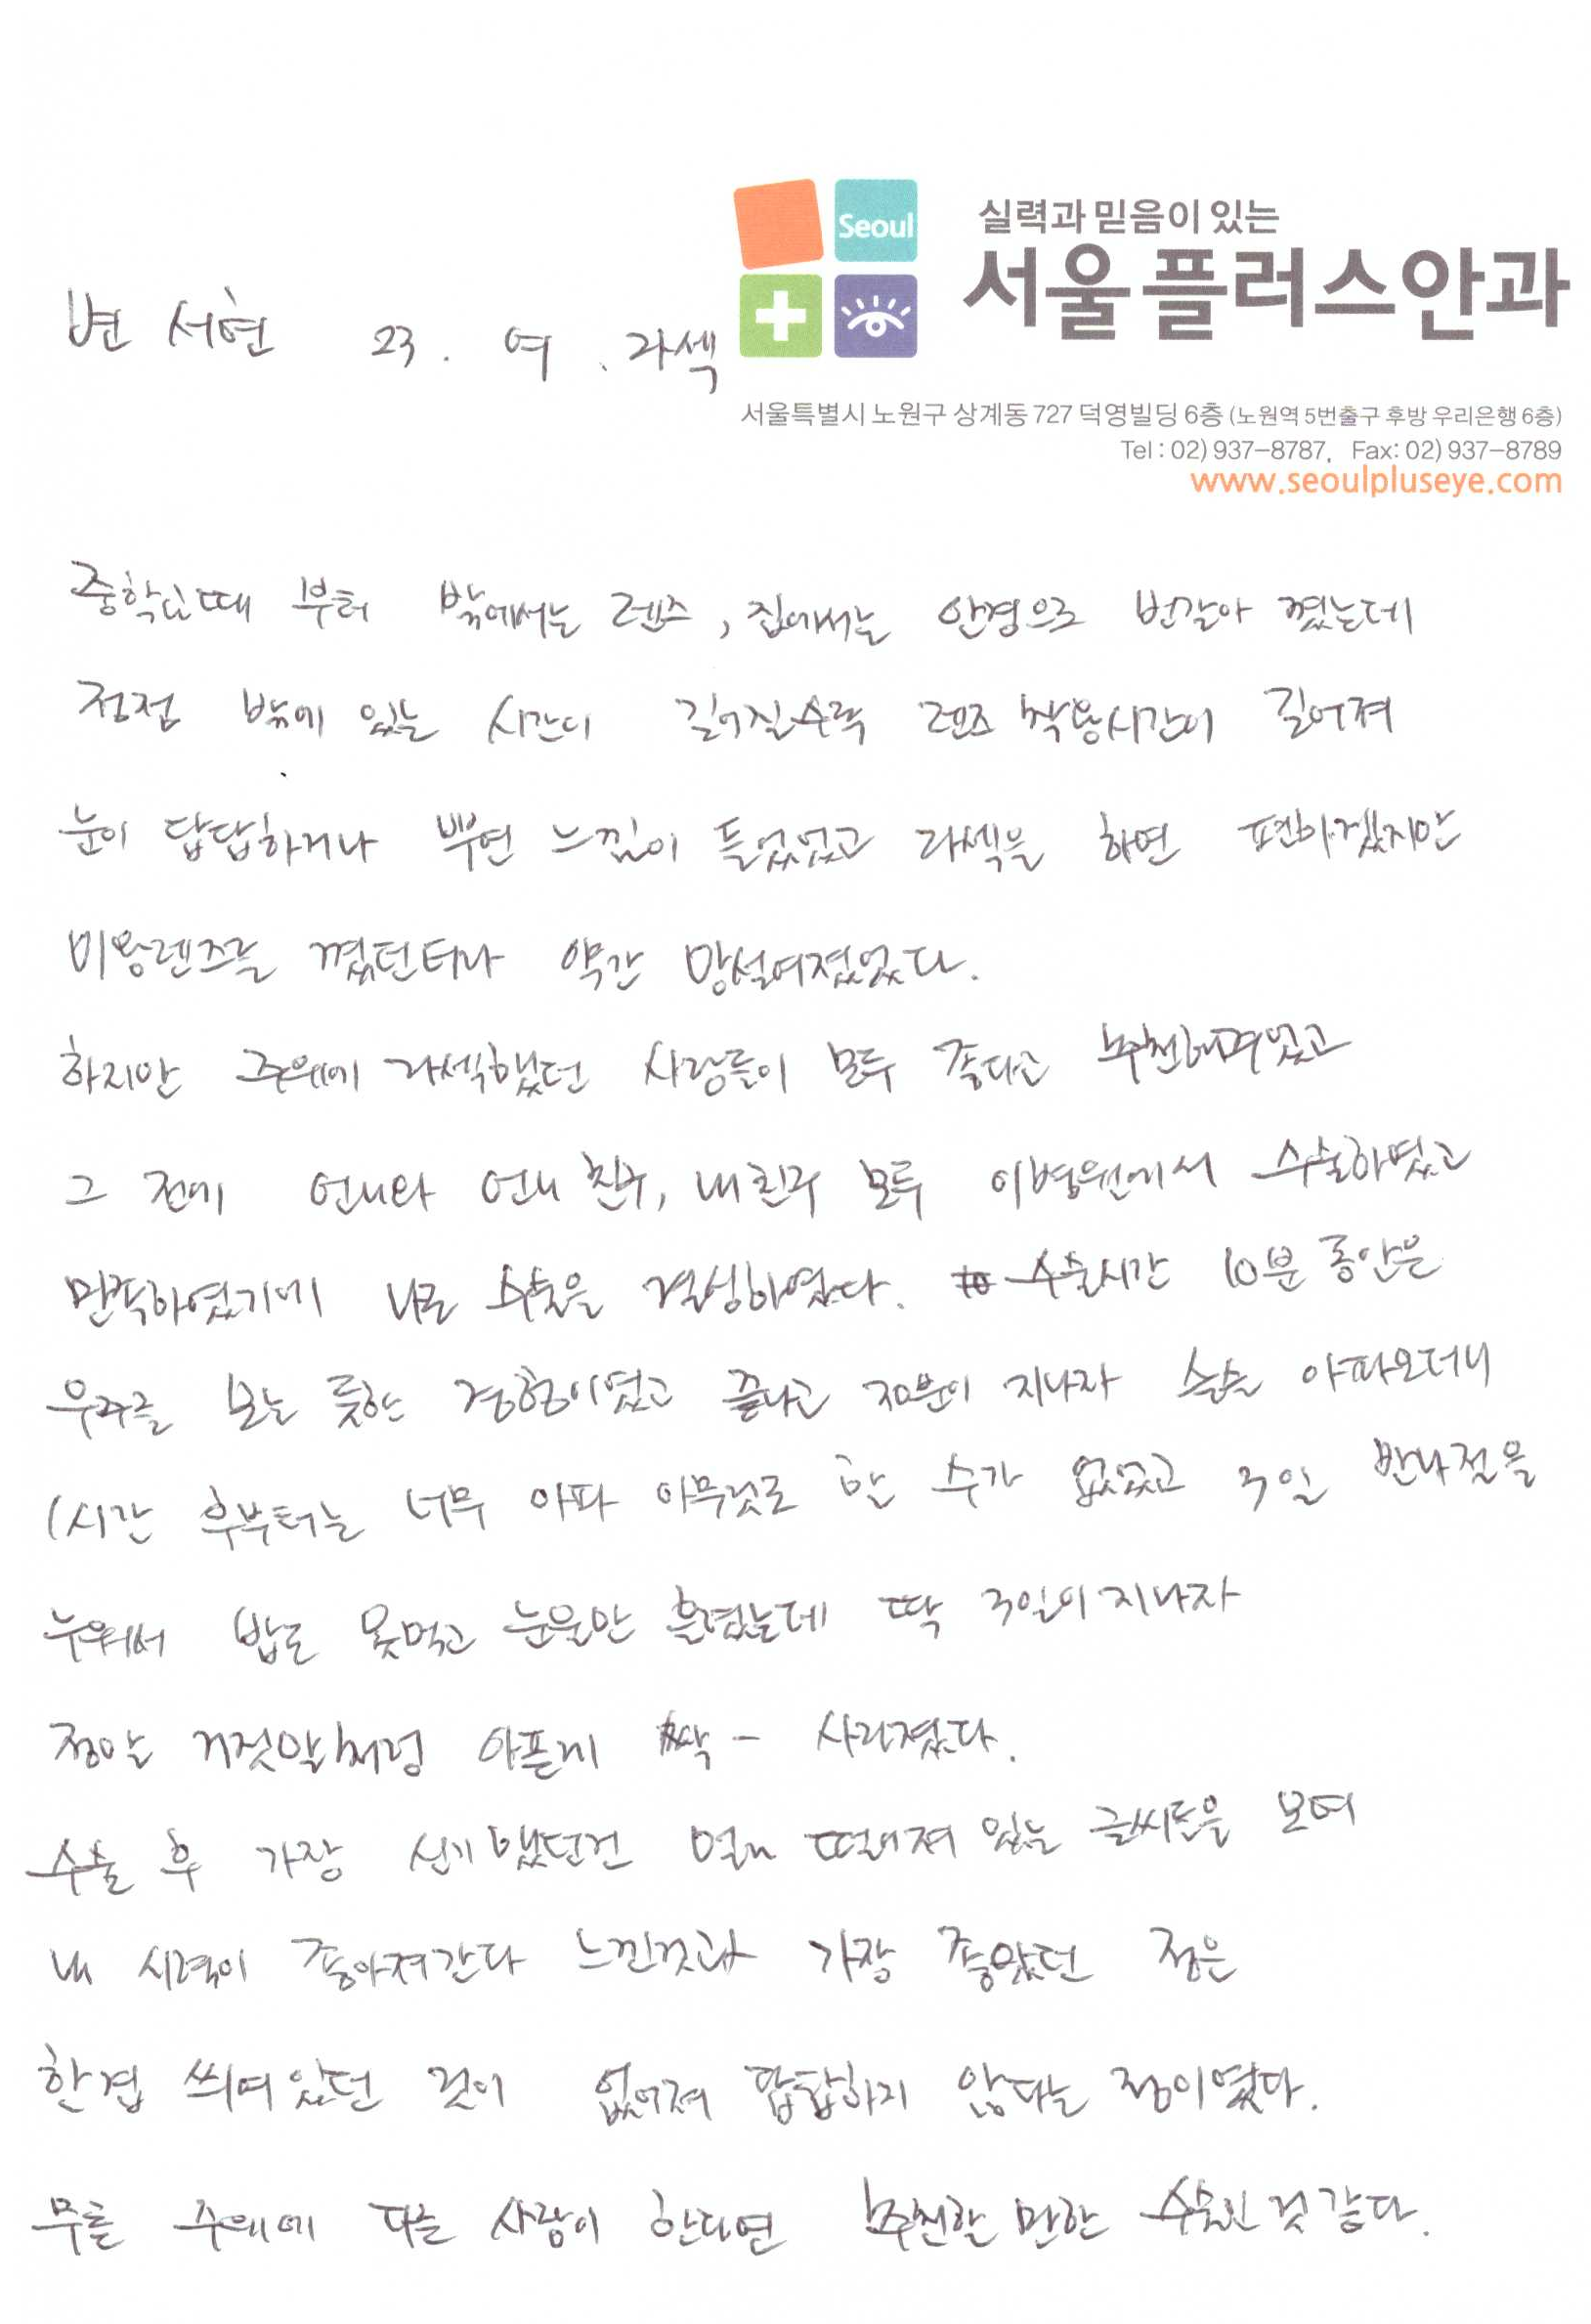 Seoul
실력과 믿음이 있는
서울플러스안과
변서현 23. 여. 라섹
서울특별시 노원구 상계동 727 덕영빌딩 6층 (노원역 5번출구 후방 우리은행 6층)
Tel : 02) 937-8787, Fax: 02) 937-8789
www.seoulpluseye.com
중학교때 부터 밖에서는 렌즈, 집에서는 안경으로 번갈아 꼈는데
점점 밖에 있는 시간이 길어질수록 렌즈 착용시간이 길어져
눈이 답답하거나 뿌연 느낌이 들었었고 라섹을 하면 편하겠지만
미용렌즈를 꼈던터라 약간 망설여졌었다.
하지만 주위에 라섹했던 사람들이 모두 좋다고 추천해주었고
그 전에 언니와 언니 친구, 내친구 모두 이병원에서 수술하였고
만족하였기에 나도 수술을 결심하였다. 수술시간 10분 동안은
우주를 보는 듯한 경험이었고 끝나고 30분이 지나자 슬슬 아파오더니
1시간 후부터는 너무 아파 아무것도 할 수가 없었고 3일 반나절을
누워서 밥도 못먹고 눈물만 흘렸는데 딱 3일이 지나자
정말 거짓말처럼 아픈게 싹 - 사라졌다.
수술 후 가장 신기했던건 멀리 떨어져 있는 글씨들을 보며
내 시력이 좋아져간다 느낀것과 가장 좋았던 점은
한겹 씌여있던 것이 없어져 답답하지 않다는 점이였다.
주위에 다른 사람이 한다면 추천할 만한 수술인 것 같다.